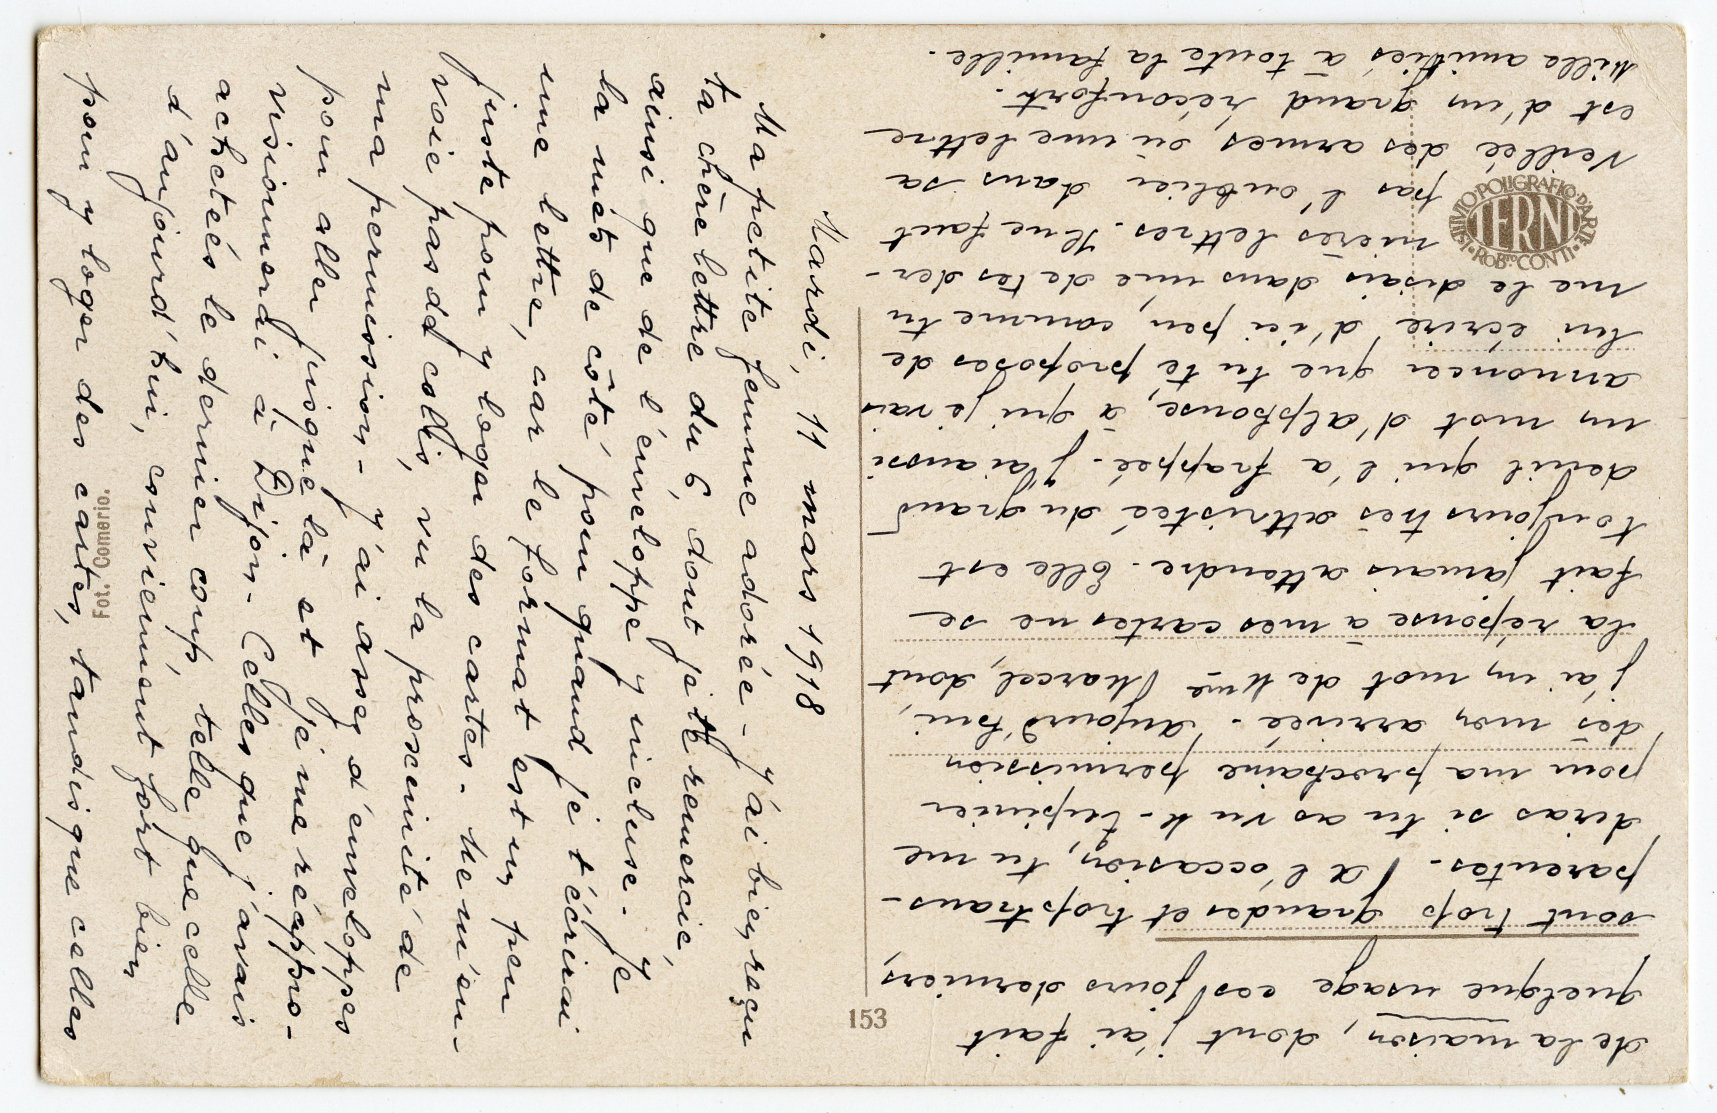 Mardi, 11 mars 1918
Ma petite femme adorée - J'ai bien reçu
ta chère lettre du 6, dont je te remercie,
ainsi que de l'enveloppe y incluse. Je
la mets de côté pour quand je t'écrirai
une lettre, car le format est un peu
juste pour y loger des cartes. Ne m'en-
voie pas de colis, vu la proximité de
ma permission - J'ai assez d'enveloppes
pour aller jusque là et je me réappro-
visionnerai à Dijon - Celles que j'avais
achetées le dernier coup telle que celle
d'aujourd'hui, conviennent fort bien
pour y loger des cartes, tandis que celles
de la maison, dont j'ai fait
quelque usage ces jours derniers,
sont trop grandes et trop trans-
parentes. A l'occasion, tu me
diras si tu as vu M. Tupinier
pour ma prochaine permission
dès mon arrivée. Aujourd'hui,
j'ai un mot de Mme Marcel, dont
la réponse à mes cartes ne se
fait jamais attendre. Elle est
toujours très attristée du grand
deuil qui l'a frappée. J'ai aussi
un mot d'Alphonse, à qui je vais
annoncer que tu te proposes de
lui écrire d'ici peu, comme tu
me le disais dans une de tes der-
nières lettres. Il ne faut
pas l'oublier dans sa
veillée des armes où une lettre
est d'un grand réconfort.
Mille amitiés à toute la famille.
ISTITVTO·POLIGRAFICO·D'ARTE·
TERNI
·ROB.TO CONTI·
153
Fot. Comerio.